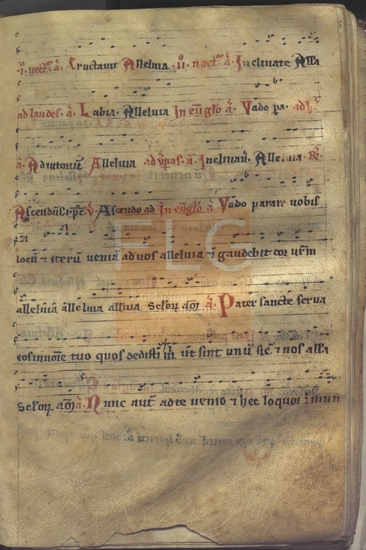 .i. noct̄. ā. Eructauit Alleluia .ii. noct̄. ā. Inclinate Alla
ad laudes. ā. Labia. Alleluia In eu̅glo ā. Vado pa. ad
ā. Adiutoriū Alleluia ad ūpas. ā. Inclinaui. Alleluia.
℣. Ascendo ad In eu̅glo ā. Vado parare uobis
locū ⁊ iterū ueniā ad uos alleluia ⁊ gaudebit cor ur̄m
alleluia alleluia alleluia seloꝝ am̄ ā. Pater sancte serua
eos in noīe tuo quos dedisti m̄ ut sint unū sic̄ ⁊ nos alla
Seloꝝ am̄ ā. Nunc aut̄ ad te uenio ⁊ hec loquor ī mun
FLG